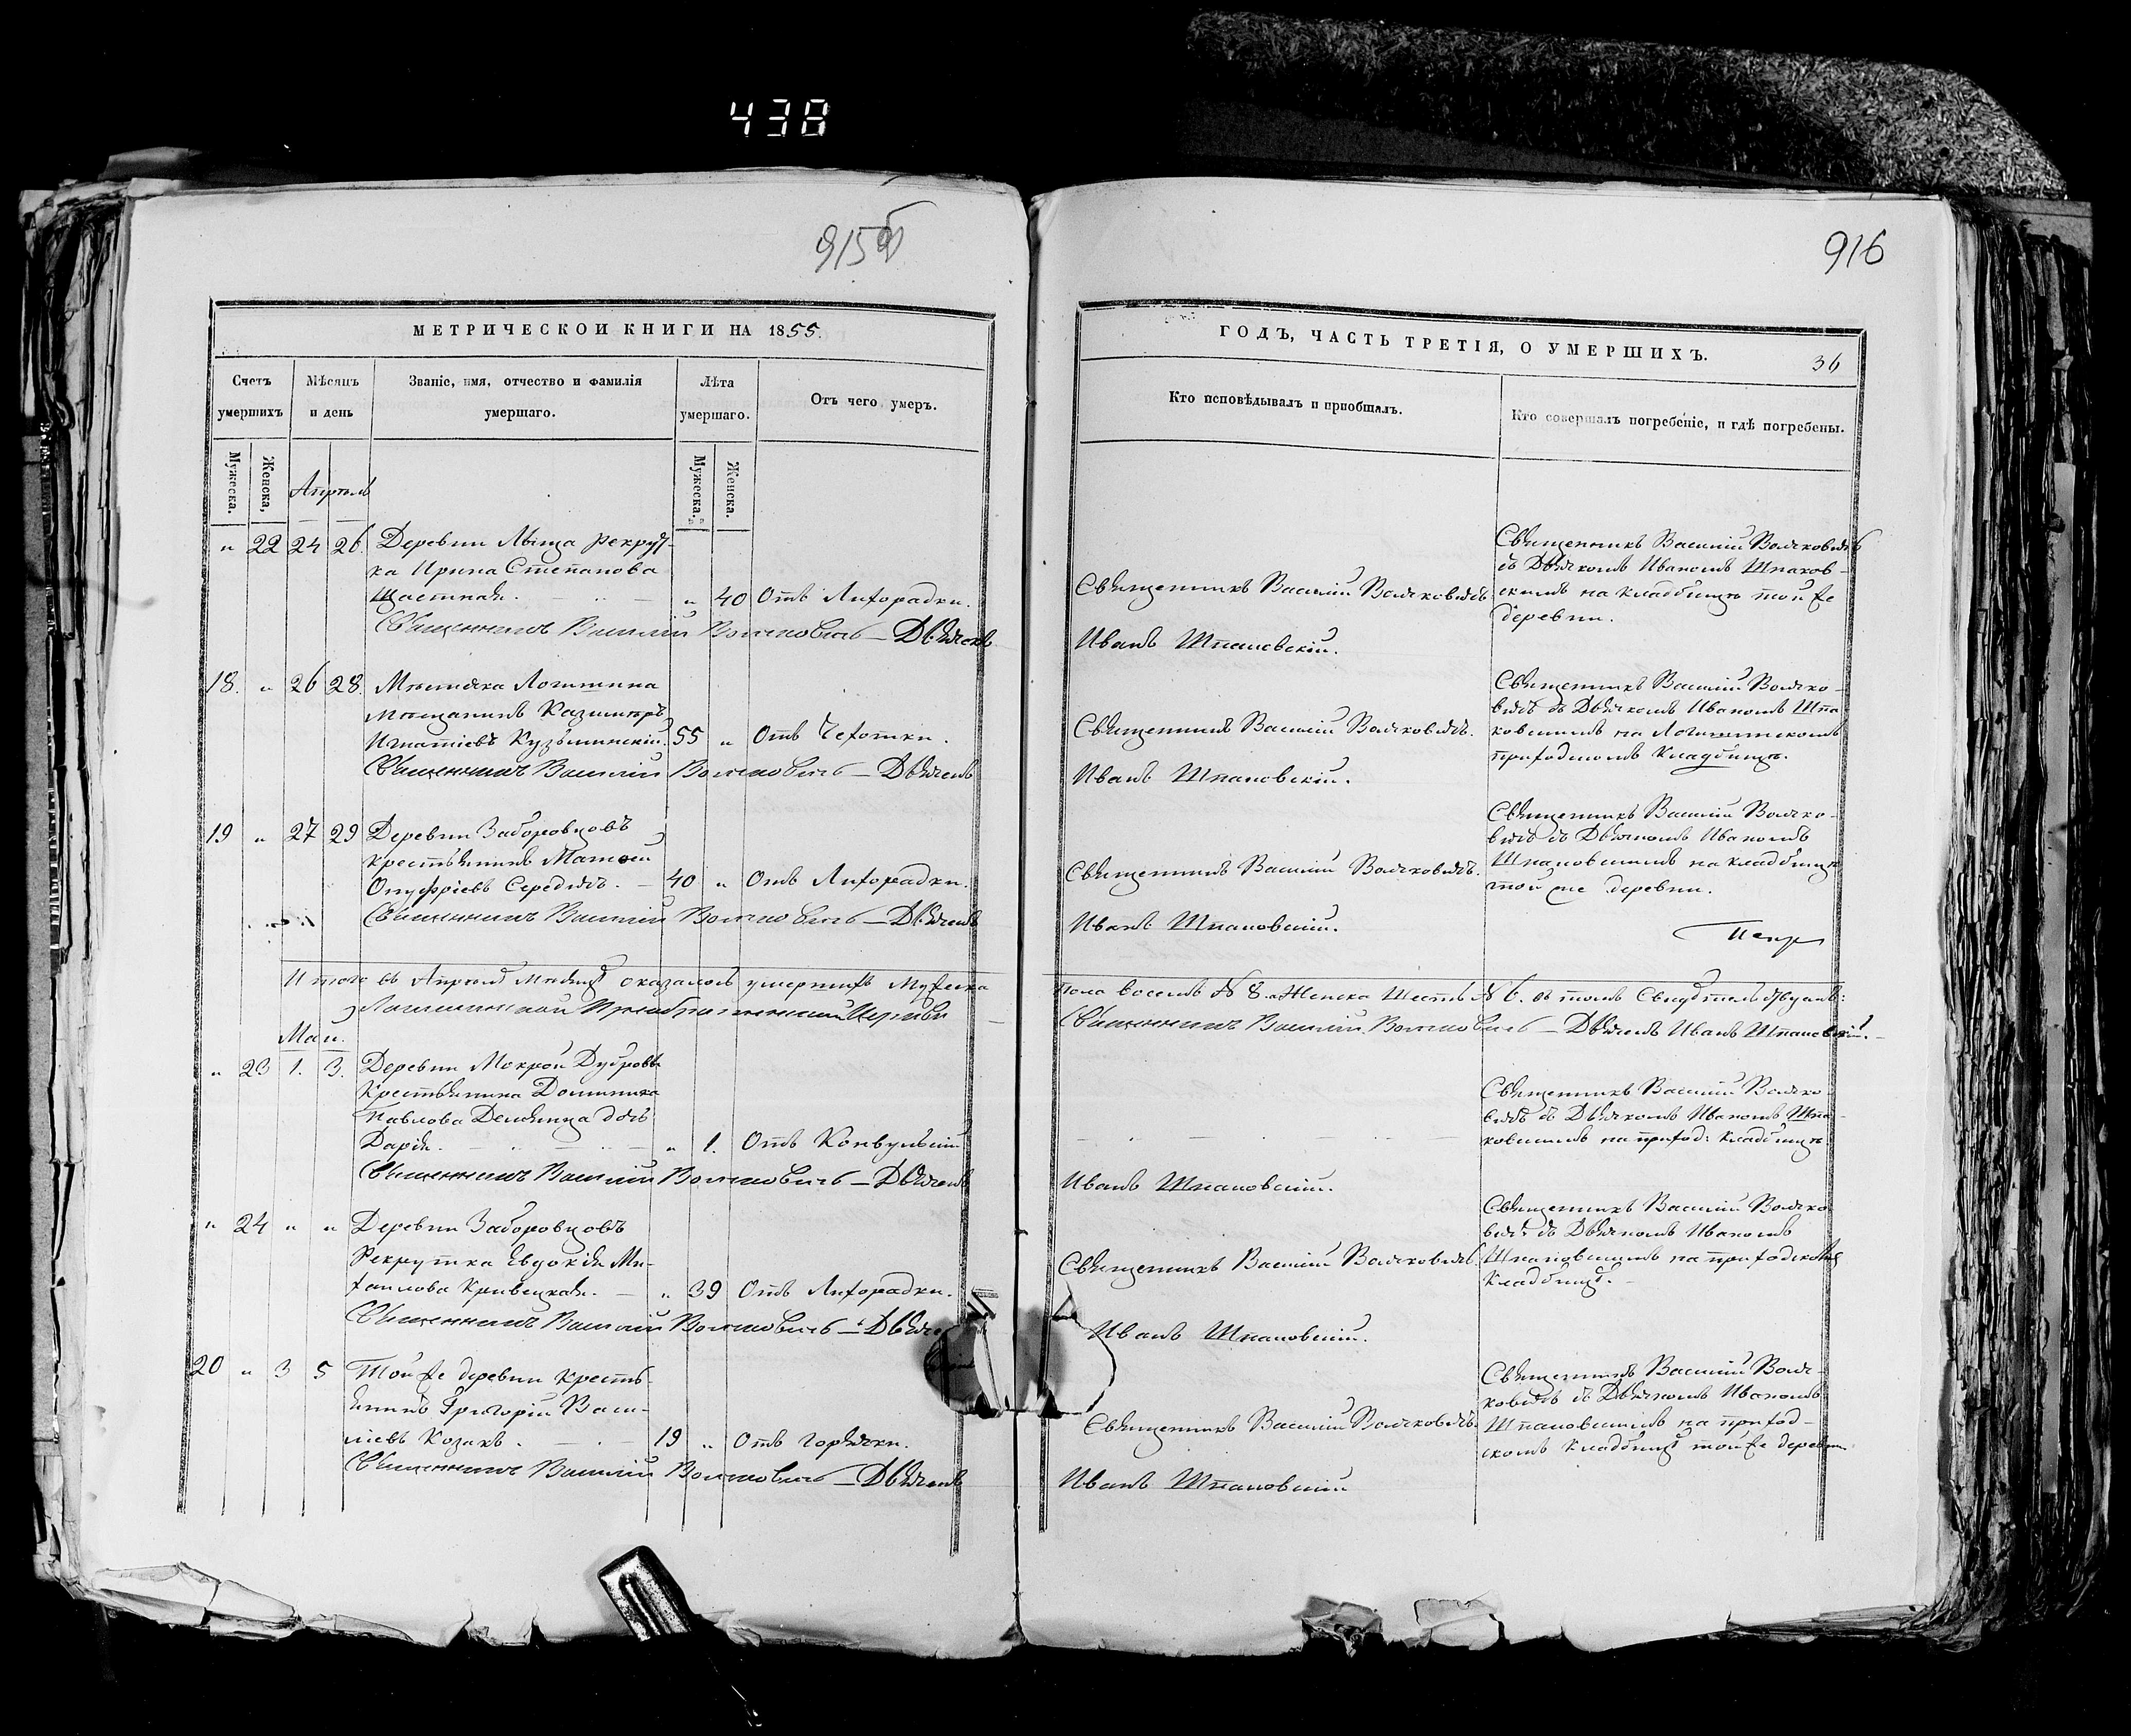 438
915об
916
МЕТРИЧЕСКОЙ КНИГИ НА 1855.
Счетъ умершихъ
Мѣсяцъ и день
Званіе, имя, отчество и фамилія умершаго.
Лѣта умершаго.
Отъ чего умеръ.
Мужеска.
Женска.
Апрѣль
Мужеска.
Женска.
" 22 24 26. Деревни Мыща рекрут-
ка Ирина Степанова
Щастная. " 40 Отъ Лихорадки.
Священникъ Василій Волчковичъ — Дьячекъ
18. " 26 28. Мѣстечка Логишина
мѣщанинъ Казимиръ
Игнатіевъ Кузьминскій. 55 " Отъ Чехотки.
Священникъ Василій Волчковичъ — Дьячекъ
19 " 27 29 Деревни Заборовцовъ
крестьянинъ Матѳей
Онуфріевъ Середичъ. 40 " Отъ Лихорадки.
Священникъ Василій Волчковичъ — Дьячекъ
Итого въ Апрѣлѣ Мѣсяцѣ оказалось умершихъ Мужеска
Логишинской Преображенской Церкви
Май.
" 23 1. 3. Деревни Мокрой Дубровы
Крестьянина Доминика
Павлова дочь
Дарія. " 1. Отъ Конвульсій
Священникъ Василій Волчковичъ — Дьячекъ
" 24 " " Деревни Заборовцовъ
Рекрутка Евдокія Ми-
хаилова Кривецкая. " 39 Отъ Лихорадки.
Священникъ Василій Волчковичъ — Дьяче
20 " 3 5 Той же деревни кресть-
янинъ Григорій Васи-
ліевъ Козакъ. 19 " Отъ Горячки.
Священникъ Василій Волчковичъ — Дьячекъ
ГОДЪ, ЧАСТЬ ТРЕТІЯ, О УМЕРШИХЪ.
36
Кто исповѣдывалъ и пріобщалъ.
Кто совершалъ погребеніе, и гдѣ погребены.
Священникъ Василій Волчковичъ
съ Дьячкомъ Иваномъ Шпаков-
Священникъ Василій Волчковичъ
скимъ на кладбищѣ той же
деревни.
Иванъ Шпаковскій.
Священникъ Василій Волчко-
вичъ съ Дьячкомъ Иваномъ Шпа
Священникъ Василій Волчковичъ.
ковскимъ на Логишинскомъ
приходскомъ кладбищѣ.
Иванъ Шпаковскій.
Священникъ Василій Волчко-
вичъ съ Дьячкомъ Иваномъ
Священникъ Василій Волчковичъ.
Шпаковскимъ на кладбищѣ
той же деревни.
Иванъ Шпаковскій.
пола восемь N 8. а Женска Шесть N 6. въ томъ Свидѣтельствуемъ:
Священникъ Василій Волчковичъ — Дьячекъ Иванъ Шпаковскій.
Священникъ Василій Волчко
вичъ съ Дьячкомъ Иваномъ Шпа-
ковскимъ на приход: кладбищѣ
Иванъ Шпаковскій.
Священникъ Василій Волчко
вичъ съ Дьячкомъ Иваномъ
Священникъ Василій Волчковичъ
Шпаковскимъ на приходскомъ
Кладбищѣ.
Иванъ Шпаковскій.
Священникъ Василій Волч-
ковичъ съ Дьячкомъ Иваномъ
Священникъ Василій Волчковичъ
Шпаковскимъ на приход-
скомъ Кладбищѣ той же деревни
Иванъ Шпаковскій